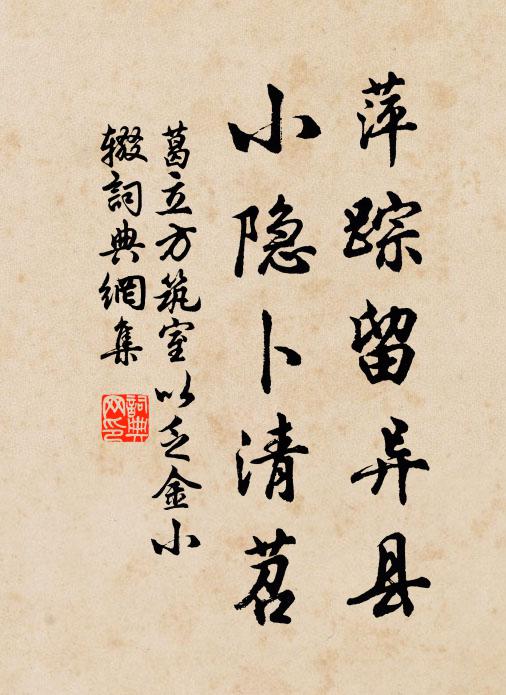 萍踪留异县
小隐卜清苕
葛立方筑室以乏金小
辍詞典網集
詞典
网印